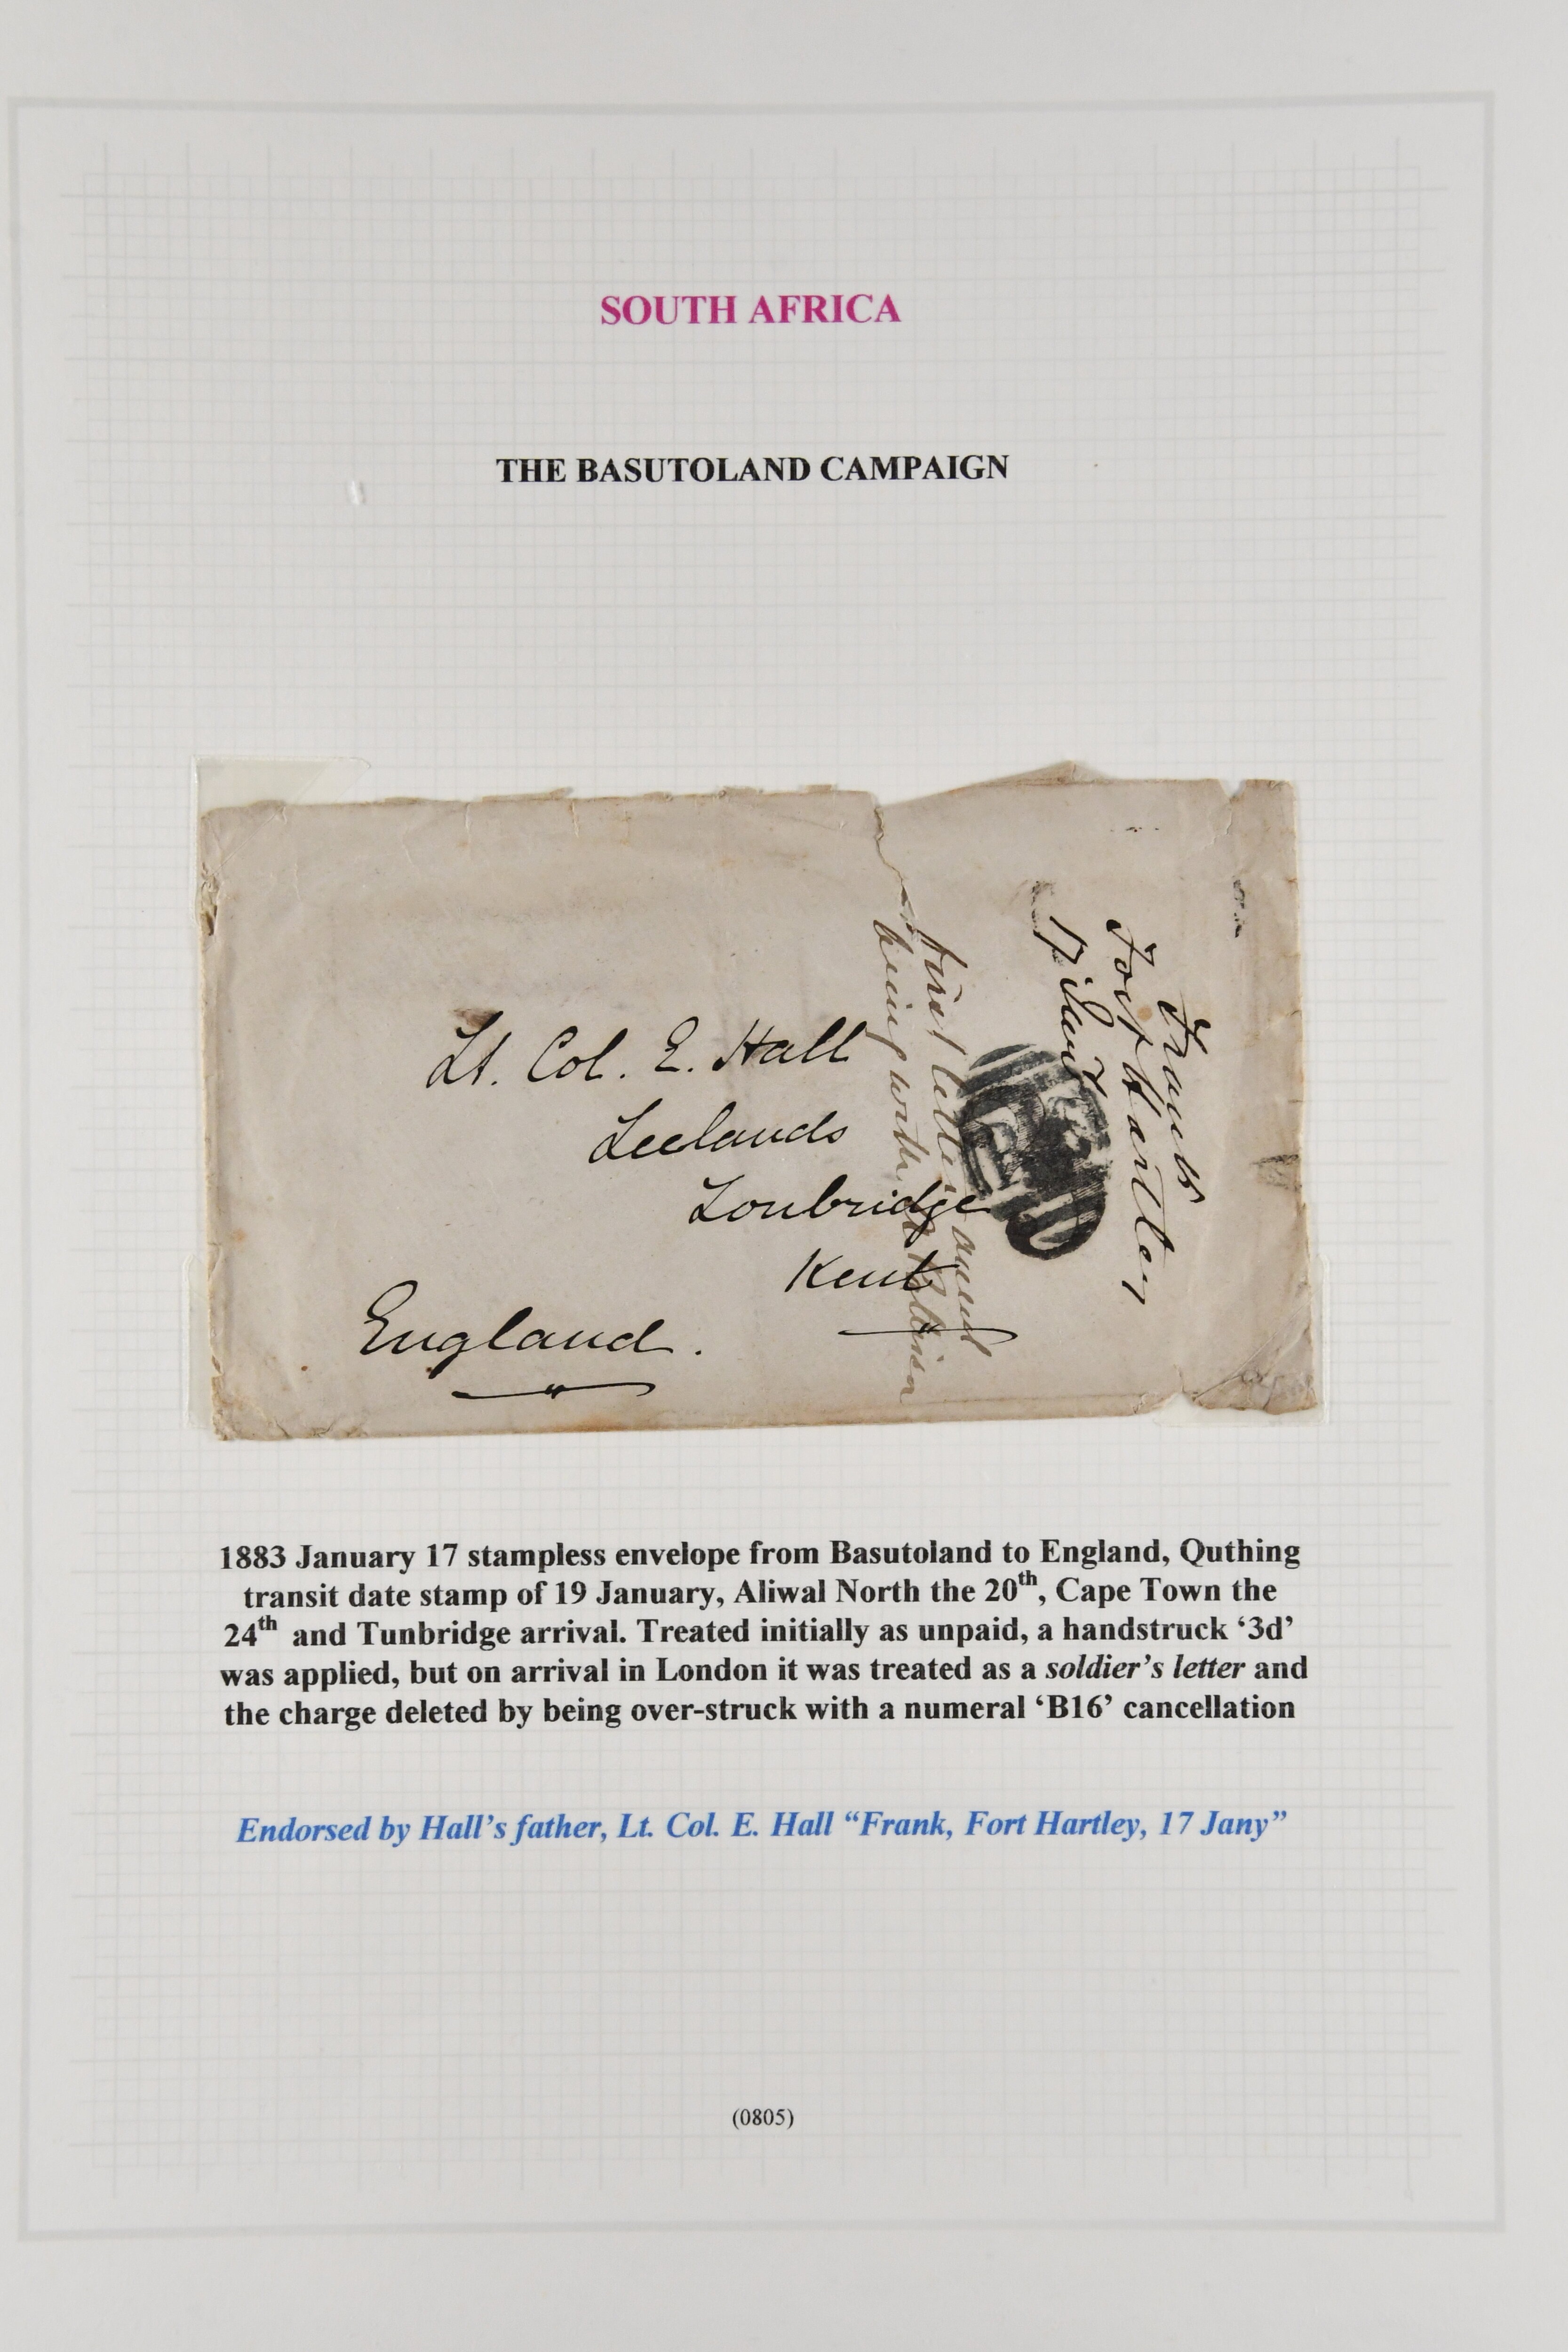 SOUTH AFRICA
THE BASUTOLAND CAMPAIGN
Lt. Col. E. Hall
Leelands
Tonbridge
Kent
England.
Frank
Fort Hartley
17 Jany
first letter
being with
1883 January 17 stampless envelope from Basutoland to England, Quthing
transit date stamp of 19 January, Aliwal North the 20th, Cape Town the
24th and Tunbridge arrival. Treated initially as unpaid, a handstruck ‘3d’
was applied, but on arrival in London it was treated as a soldier’s letter and
the charge deleted by being over-struck with a numeral ‘B16’ cancellation
Endorsed by Hall’s father, Lt. Col. E. Hall “Frank, Fort Hartley, 17 Jany”
(0805)